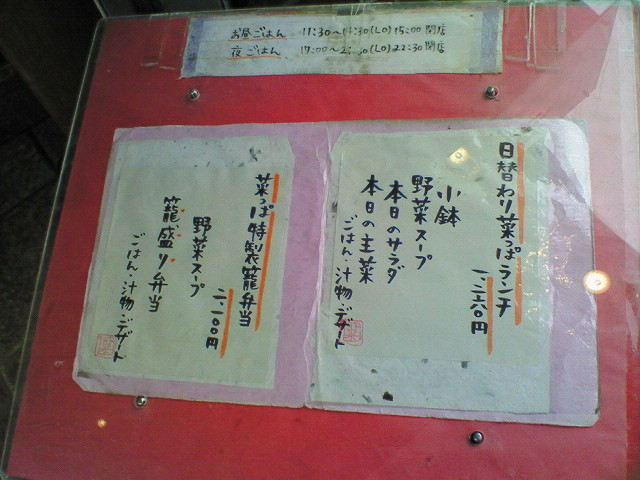 お昼ごはん 11:30〜14:30(LO) 15:00 閉店
夜ごはん 17:00〜21:30(LO) 22:30 閉店
日替わり菜っぱランチ
一、二六〇円
小鉢
野菜スープ
本日のサラダ
本日の主菜
ごはん・汁物・デザート
菜っぱ特製籠弁当
二、一〇〇円
野菜スープ
籠盛り弁当
ごはん・汁物・デザート